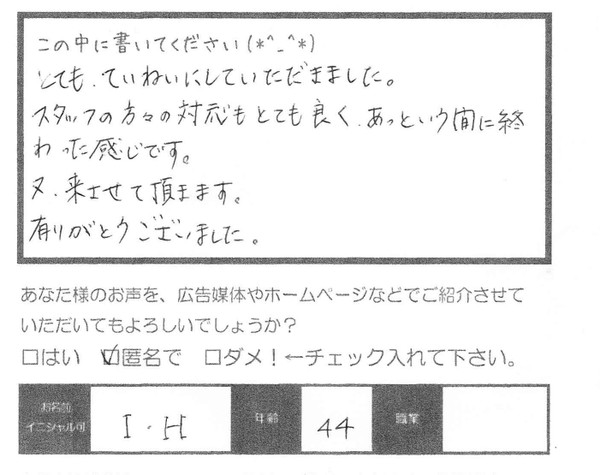 この中に書いてください(*^_^*)
とても、ていねいにしていただきました。
スタッフの方々の対応もとても良く、あっという間に終
わった感じです。
又、来させて頂きます。
有りがとうございました。
あなた様のお声を、広告媒体やホームページなどでご紹介させて
いただいてもよろしいでしょうか?
□はい ☑匿名で □ダメ!←チェック入れて下さい。
お名前 イニシャル可 I・H 年齢 44 職業